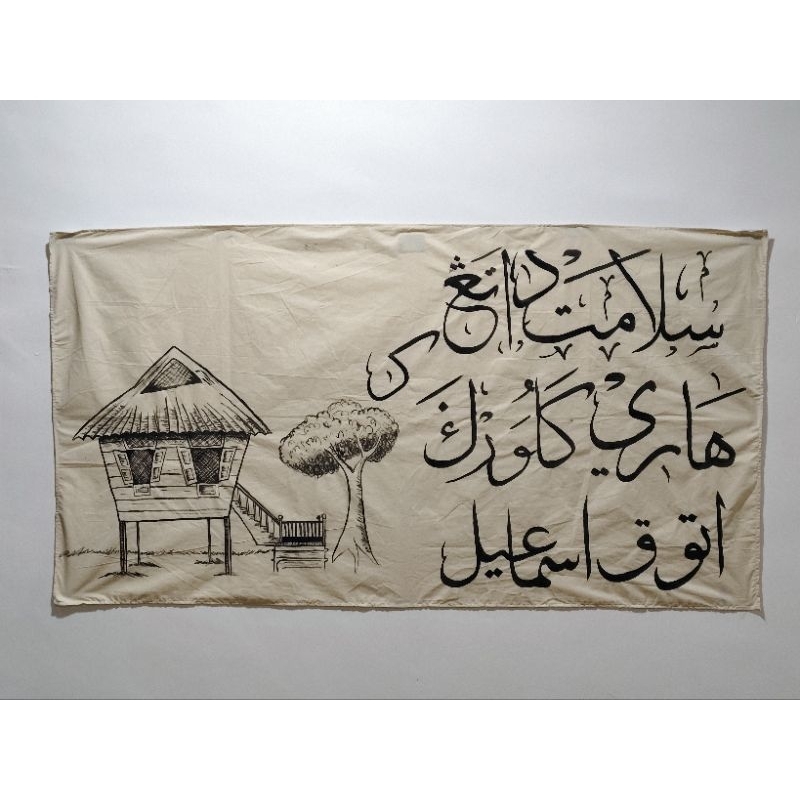 سلامت داتڠ ک
هاري كلورݢ
اتوق اسماعيل